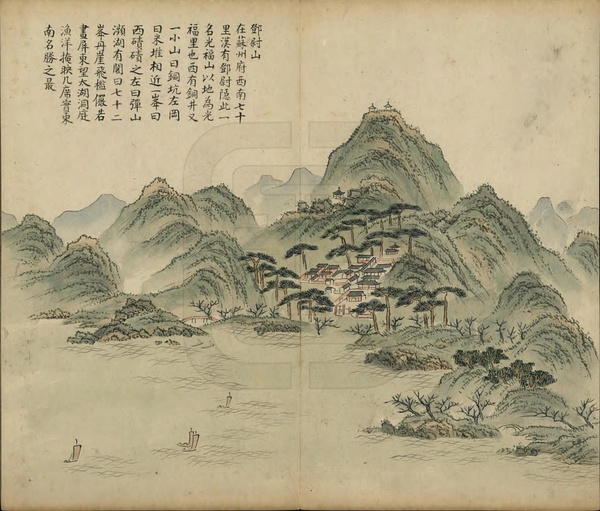 鄧尉山
在蘇州府西南七十
里漢有鄧尉隱此一
名光福山以地為光
福里也西有銅井又
一小山曰銅坑左岡
曰米堆相近一峯曰
西磧磧之左曰彈山
瀕湖有閣曰七十二
峯丹崖飛檻儼若
畫屏東望太湖洞庭
漁洋掩映几席實東
南名勝之最